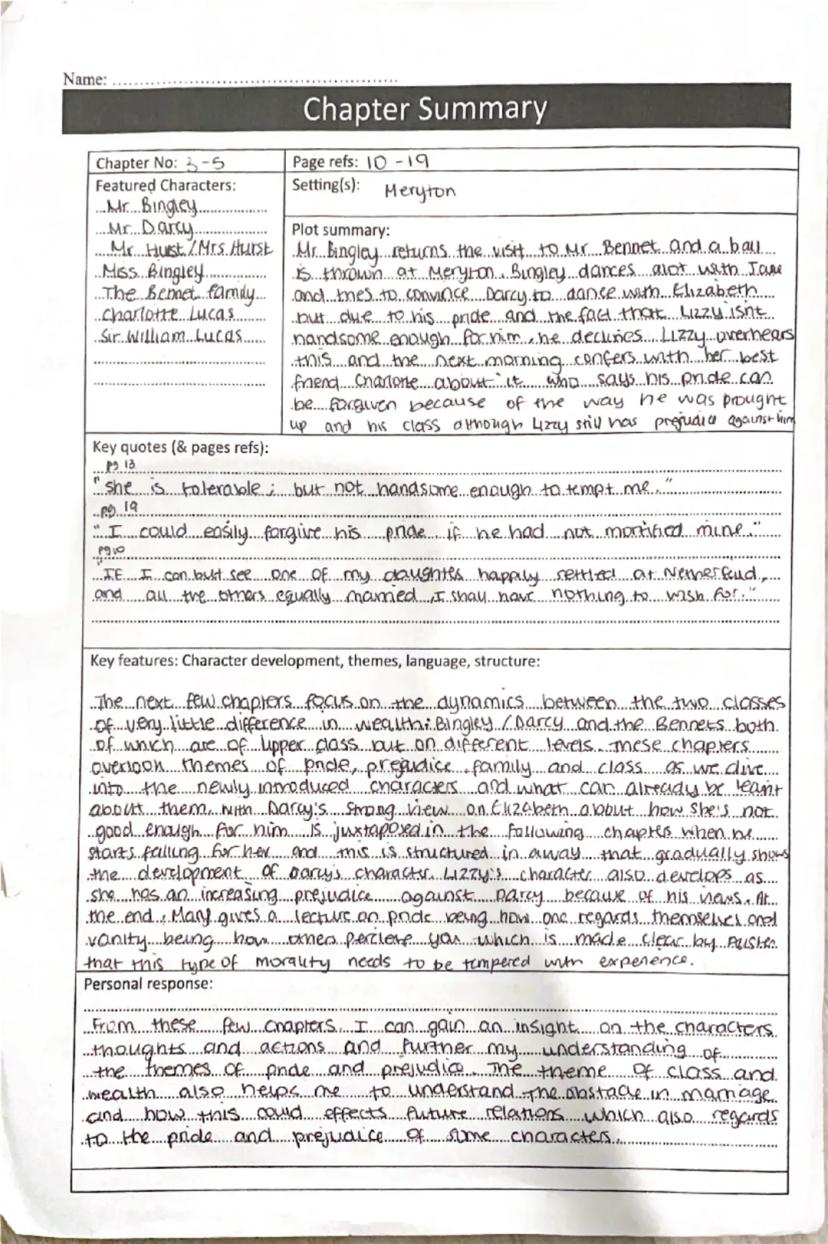 Name:
Chapter Summary
Chapter No: 3-5
Page refs: 10-19
Featured Characters:
Mr. Bingley
Mr. Darcy
Mr Hust/Mrs Hurst
Miss Bingley
The Bennet family
Charlotte Lucas
Sir William Lucas
Setting(s): Meryton
Plot summary:
Mr. Bingley returns the visit to Mr. Bennet and a ball
is thrown at Meryton. Bingley dances alot with Jane
and tries to convince Darcy to dance with Elizabeth
but due to his pride and the fact that Lizzy isnt
handsome enough for him, he declines. Lizzy overhears
this and the next morning confers with her best
friend Charlotte about it who says his pride can
be forgiven because of the way he was brought
up and his class although Lizzy still has prejudice against him
Key quotes (& pages refs):
pg 13
"she is tolerable; but not handsome enough to tempt me."
pg. 19
"I could easily forgive his pride if he had not mortified mine."
pg10
"If I can but see one of my daughtes happily settled at Netherfeild,
and all the others equally married, I shall have nothing to wish for."
Key features: Character development, themes, language, structure:
The next few chapters focus on the dynamics between the two classes
of very little difference in wealth: Bingley/Darcy and the Bennets both
of which are of upper class but on different levels. These chapters
overlook themes of pride, prejudice, family and class as we dive
into the newly introduced characters and what can already be learnt
about them. With Darcy's strong view on Elizabeth about how she's not
good enough for him is juxtaposed in the following chapters when he
starts falling for her and this is structured in away that gradually shows
the development of Darcy's character. Lizzy's character also develops as
she has an increasing prejudice against Darcy because of his views. At
the end, Mary gives a lecture on pride being how one regards themselves and
vanity being how others percieve you which is made clear by Austen
that this type of morality needs to be tempered with experience.
Personal response:
From these few chapters, I can gain an insight on the characters
thoughts and actions and further my understanding of
the themes of pride and prejudice. The theme of class and
wealth also helps me to understand the obstacle in marriage
and how this could effects future relations which also regards
to the pride and prejudice of some characters.